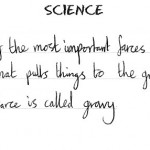 SCIENCE
the most important farces
that pulls things to the
arce is called gravy